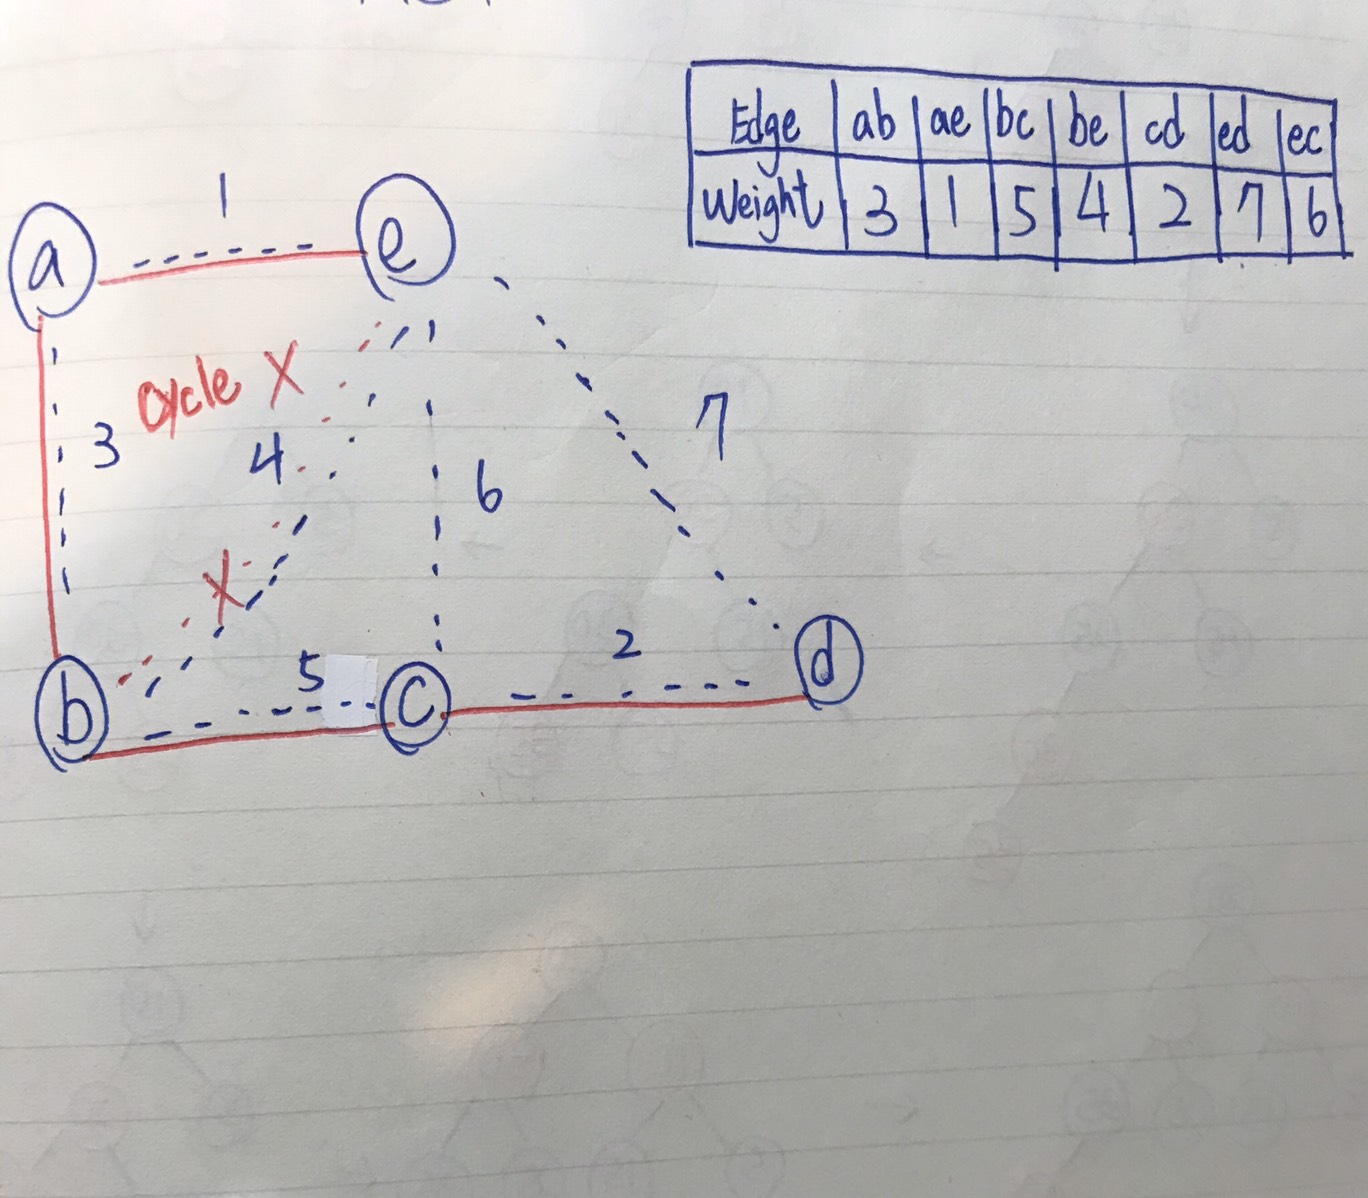 Edge ab ae bc be cd ed ec
Weight 3 1 5 4 2 7 6
1
a e
cycle X
3 4 6 7
X
5 2
b c d